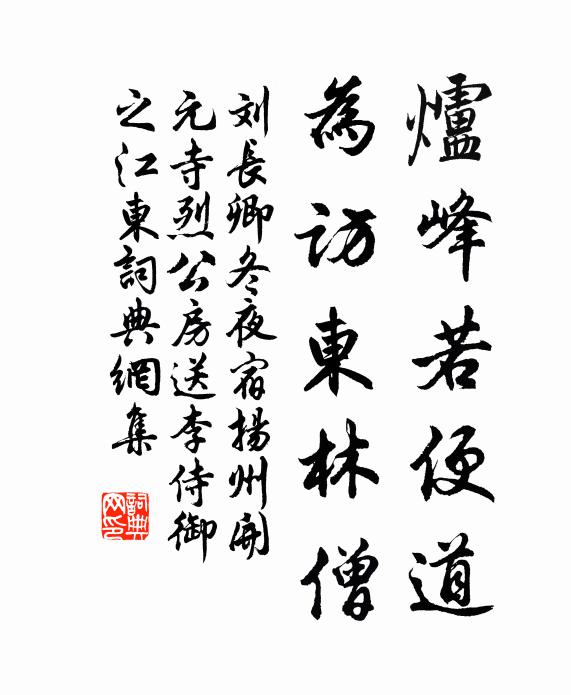 爐峰若便道
為訪東林僧
刘長卿冬夜宿揚州開
元寺烈公房送李侍御
之江東詞典網集
詞典
网印